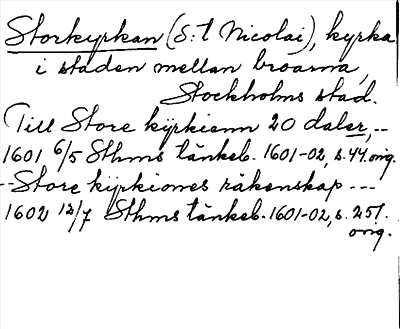 Storkyrkan (S:t Nicolai), kyrka
i staden mellan broarna,
Stockholms stad.
Till Store kyrkienn 20 daler, --
1601 6/5 Sthms tänkeb. 1601-02, s. 44. orig.
-- Store kyrkiones räkenskap ---
1602 12/7 Sthms tänkeb. 1601-02, s. 251.
orig.